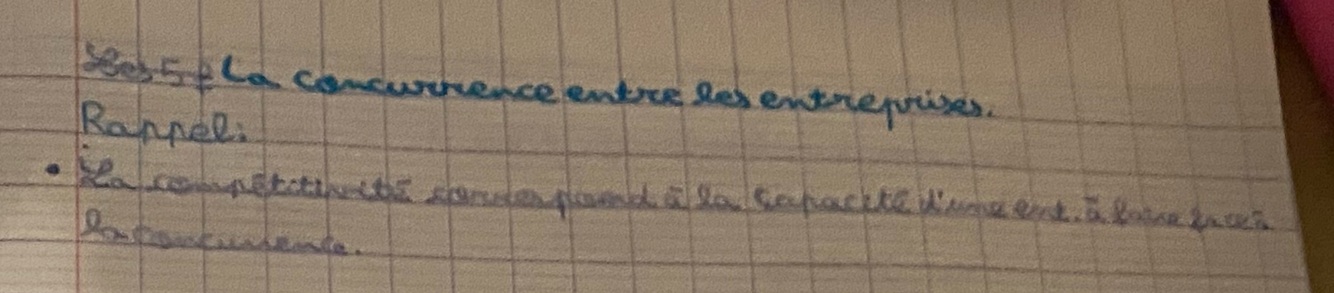 La concurrence entre les entreprises.
Rappel:
• La compétitivité correspond à la capacité d'une ent. à faire face à
la concurrence.